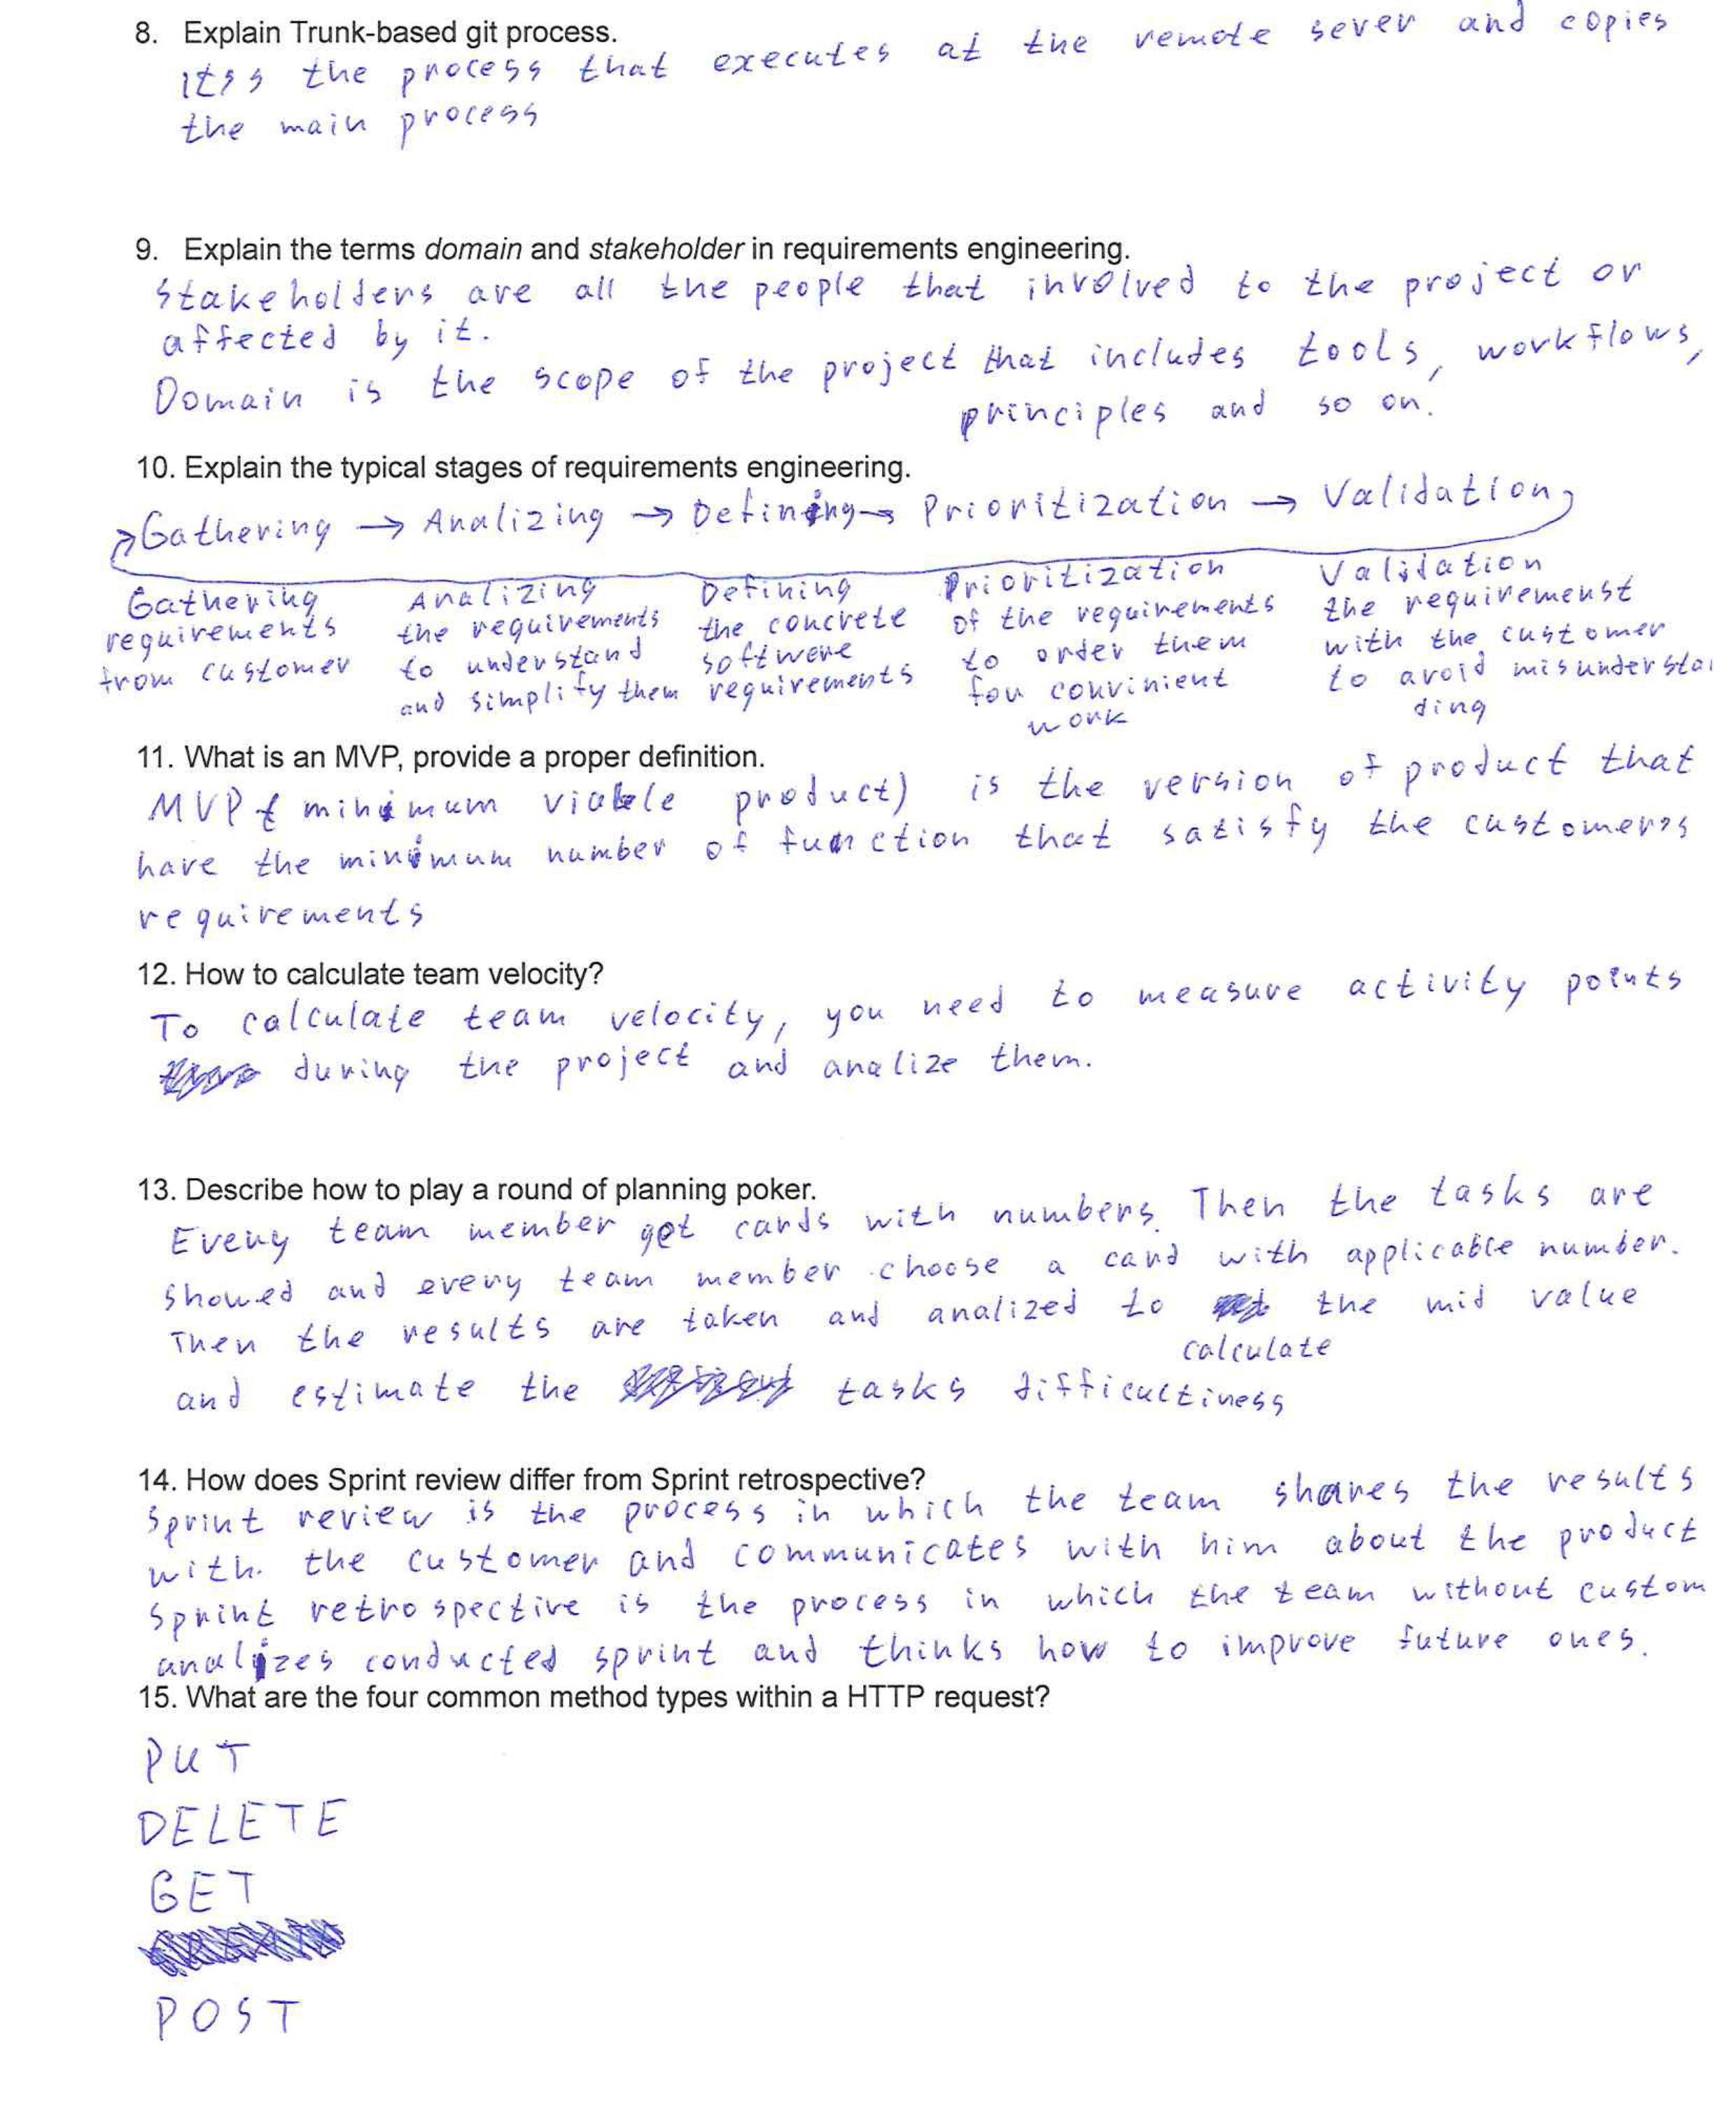 8. Explain Trunk-based git process.
It's the process that executes at the remote sever and copies
the main process
9. Explain the terms domain and stakeholder in requirements engineering.
Stakeholders are all the people that involved to the project or
affected by it.
Domain is the scope of the project that includes tools, workflows,
principles and so on.
10. Explain the typical stages of requirements engineering.
Gathering → Analizing → Defining → Prioritization → Validation
Gathering
requirements
from customer
Analizing
the requirements
to understand
and simplify them
Defining
the concrete
softwere
requirements
Prioritization
of the requirements
to order them
fou convinient
work
Validation
the requiremenst
with the customer
to avoid misundersta
ding
11. What is an MVP, provide a proper definition.
MVP (minimum viable product) is the version of product that
have the minimum number of function that satisfy the customers
requirements
12. How to calculate team velocity?
To calculate team velocity, you need to measure activity points
during the project and analize them.
13. Describe how to play a round of planning poker.
Every team member get cards with numbers. Then the tasks are
showed and every team member choose a card with applicable number.
Then the results are taken and analized to calculate the mid value
and estimate the tasks difficultiness
14. How does Sprint review differ from Sprint retrospective?
Sprint review is the process in which the team shares the results
with the customer and communicates with him about the product
Sprint retrospective is the process in which the team without custom
analizes conducted sprint and thinks how to improve future ones.
15. What are the four common method types within a HTTP request?
PUT
DELETE
GET
POST